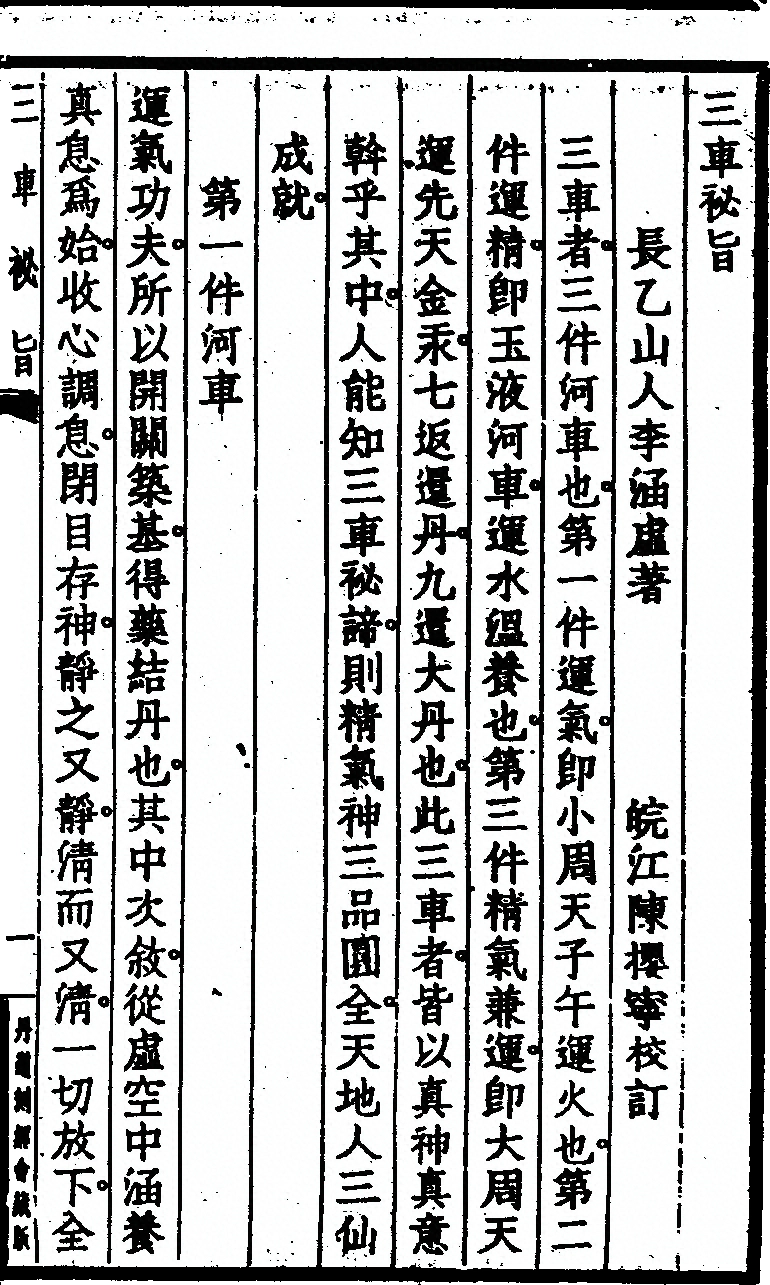 三車祕旨
長乙山人李涵虛著　皖江陳攖寧校訂
三車者。三件河車也。第一件運氣。卽小周天子午運火也。第二
件運精。卽玉液河車。運水溫養也。第三件精氣兼運。卽大周天
運先天金汞。七返還丹。九還大丹也。此三車者。皆以真神真意
斡乎其中。人能知三車祕諦。則精氣神三品圓全。天地人三仙
成就。
第一件河車
運氣功夫。所以開關築基。得藥結丹也。其中次敘。從虛空中涵養
真息爲始。收心調息。閉目存神。靜之又靜。淸而又淸。一切放下。全
三車祕旨　一　丹道刻經會藏版